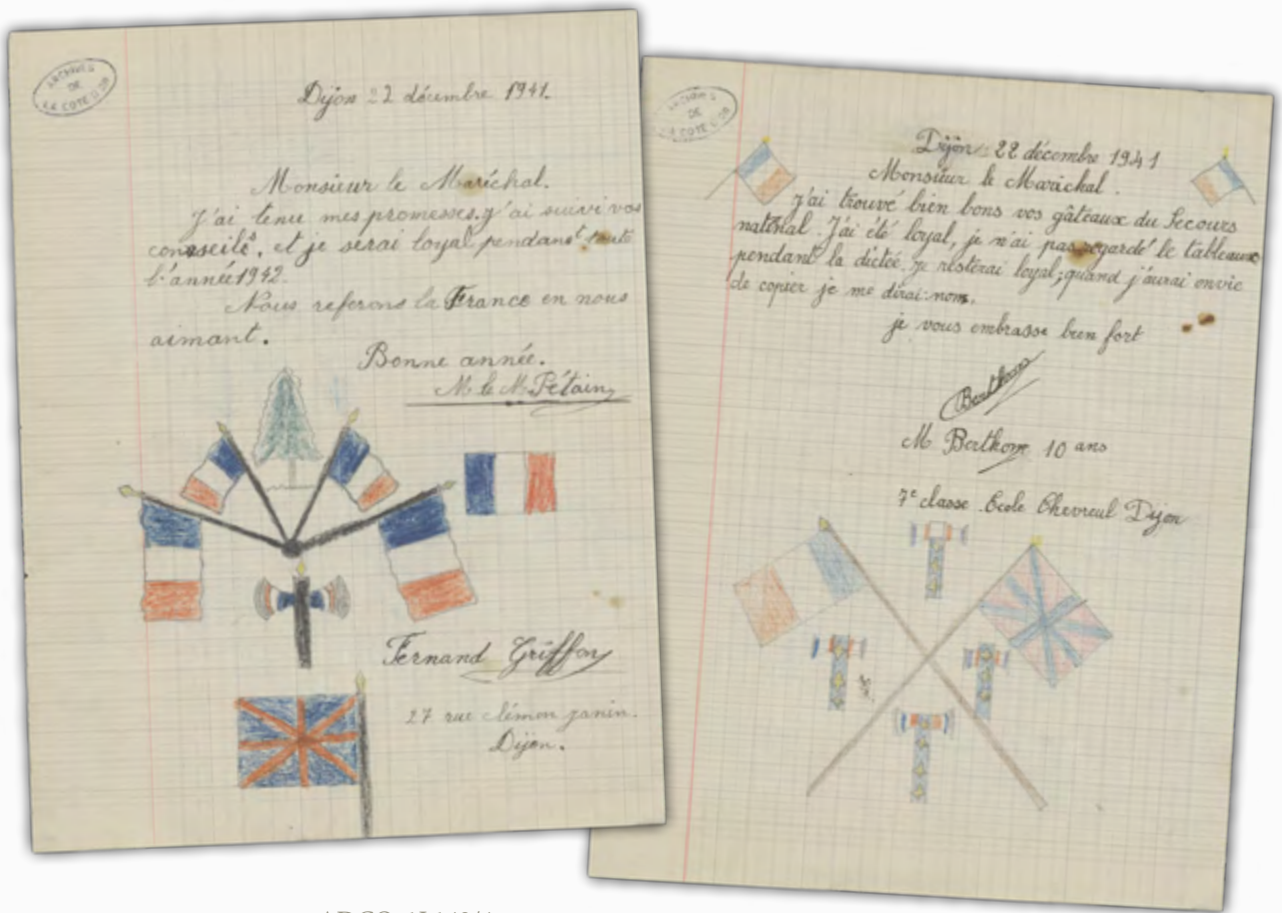 ARCHIVES
DE
LA COTE D'OR
Dijon 22 décembre 1941.
Monsieur le Maréchal.
J'ai tenu mes promesses. j'ai suivi vos
conseils, et je serai loyal pendant toute
l'année 1942.
Nous referons la France en nous
aimant.
Bonne année.
M le M Pétain
Fernand Griffon
27 rue clémen janin.
Dijon.
ARCHIVES
DE
LA COTE D'OR
Dijon 22 décembre 1941
Monsieur le Maréchal.
J'ai trouvé bien bons vos gâteaux du Secours
national. J'ai été loyal, je n'ai pas regardé le tableaux
pendant la dictée. je resterai loyal; quand j'aurai envie
de copier je me dirai: nom.
je vous embrasse bien fort
Berthom
M Berthom 10 ans
7e classe École Chevreul Dijon